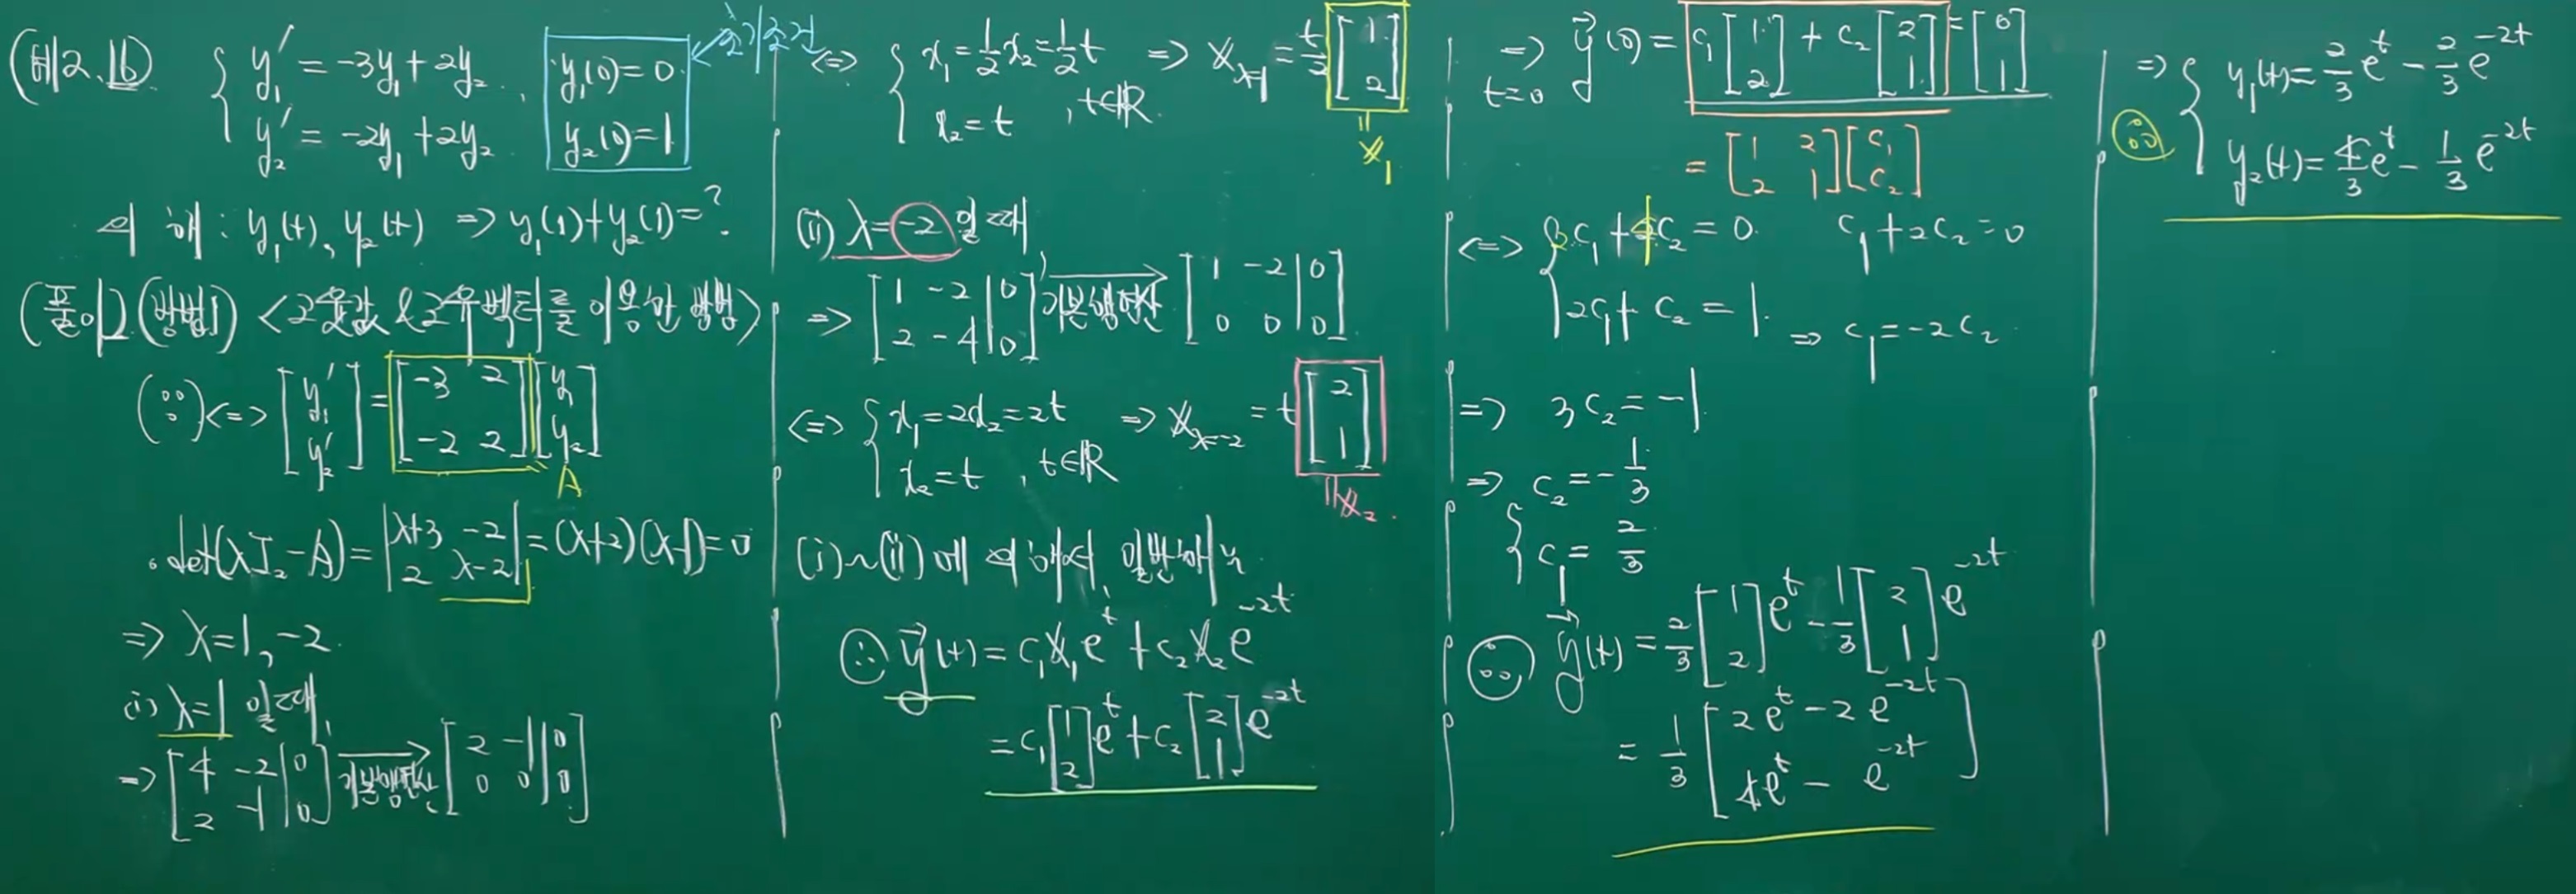 (예2.16) { y₁' = -3y₁ + 2y₂ , y₁(0) = 0 초기조건
y₂' = -2y₁ + 2y₂ y₂(0) = 1
의 해 : y₁(t), y₂(t) => y₁(1)+y₂(1)=?
(풀이) (방법1) <고윳값 & 고유벡터를 이용한 방법>
(∵) <=> [y₁' ; y₂'] = [-3 2 ; -2 2] [y₁ ; y₂]
A
det(λI₂-A) = |λ+3 -2 ; 2 λ-2| = (λ+2)(λ-1) = 0
=> λ=1, -2.
(i) λ=1 일 때,
=> [4 -2 | 0 ; 2 -1 | 0] 기본행연산 → [2 -1 | 0 ; 0 0 | 0]
<=> { x₁ = 1/2 x₂ = 1/2 t => x_λ=1 = t/2 [1 ; 2]
x₂ = t , t∈ℝ.
= x₁
(ii) λ=-2 일 때
=> [1 -2 | 0 ; 2 -4 | 0] 기본행연산 → [1 -2 | 0 ; 0 0 | 0]
<=> { x₁ = 2x₂ = 2t => x_λ=-2 = t [2 ; 1]
x₂ = t , t∈ℝ
= x₂
(i)~(ii)에 의해서, 일반해
∴ y⃗(t) = c₁x₁eᵗ + c₂x₂e⁻²ᵗ
= c₁[1 ; 2]eᵗ + c₂[2 ; 1]e⁻²ᵗ
=> t=0 y⃗(0) = c₁[1 ; 2] + c₂[2 ; 1] = [0 ; 1]
= [1 2 ; 2 1] [c₁ ; c₂]
<=> { c₁ + 2c₂ = 0. c₁ + 2c₂ = 0
2c₁ + c₂ = 1. => c₁ = -2c₂
=> 3c₂ = -1
=> { c₂ = -1/3
c₁ = 2/3
∴ y⃗(t) = 2/3 [1 ; 2]eᵗ - 1/3 [2 ; 1]e⁻²ᵗ
= 1/3 [2eᵗ - 2e⁻²ᵗ ; 4eᵗ - e⁻²ᵗ]
=> { y₁(t) = 2/3 eᵗ - 2/3 e⁻²ᵗ
∴ y₂(t) = 4/3 eᵗ - 1/3 e⁻²ᵗ